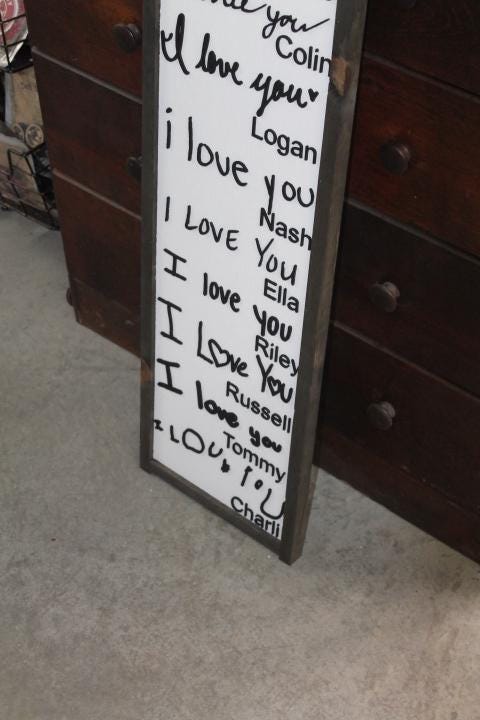 love you
Colin
I love you
Logan
i love you
Nash
I LOVE You
Ella
I love you
Riley
I Love You
Russell
I love you
Tommy
I LOVE YOU
Charli